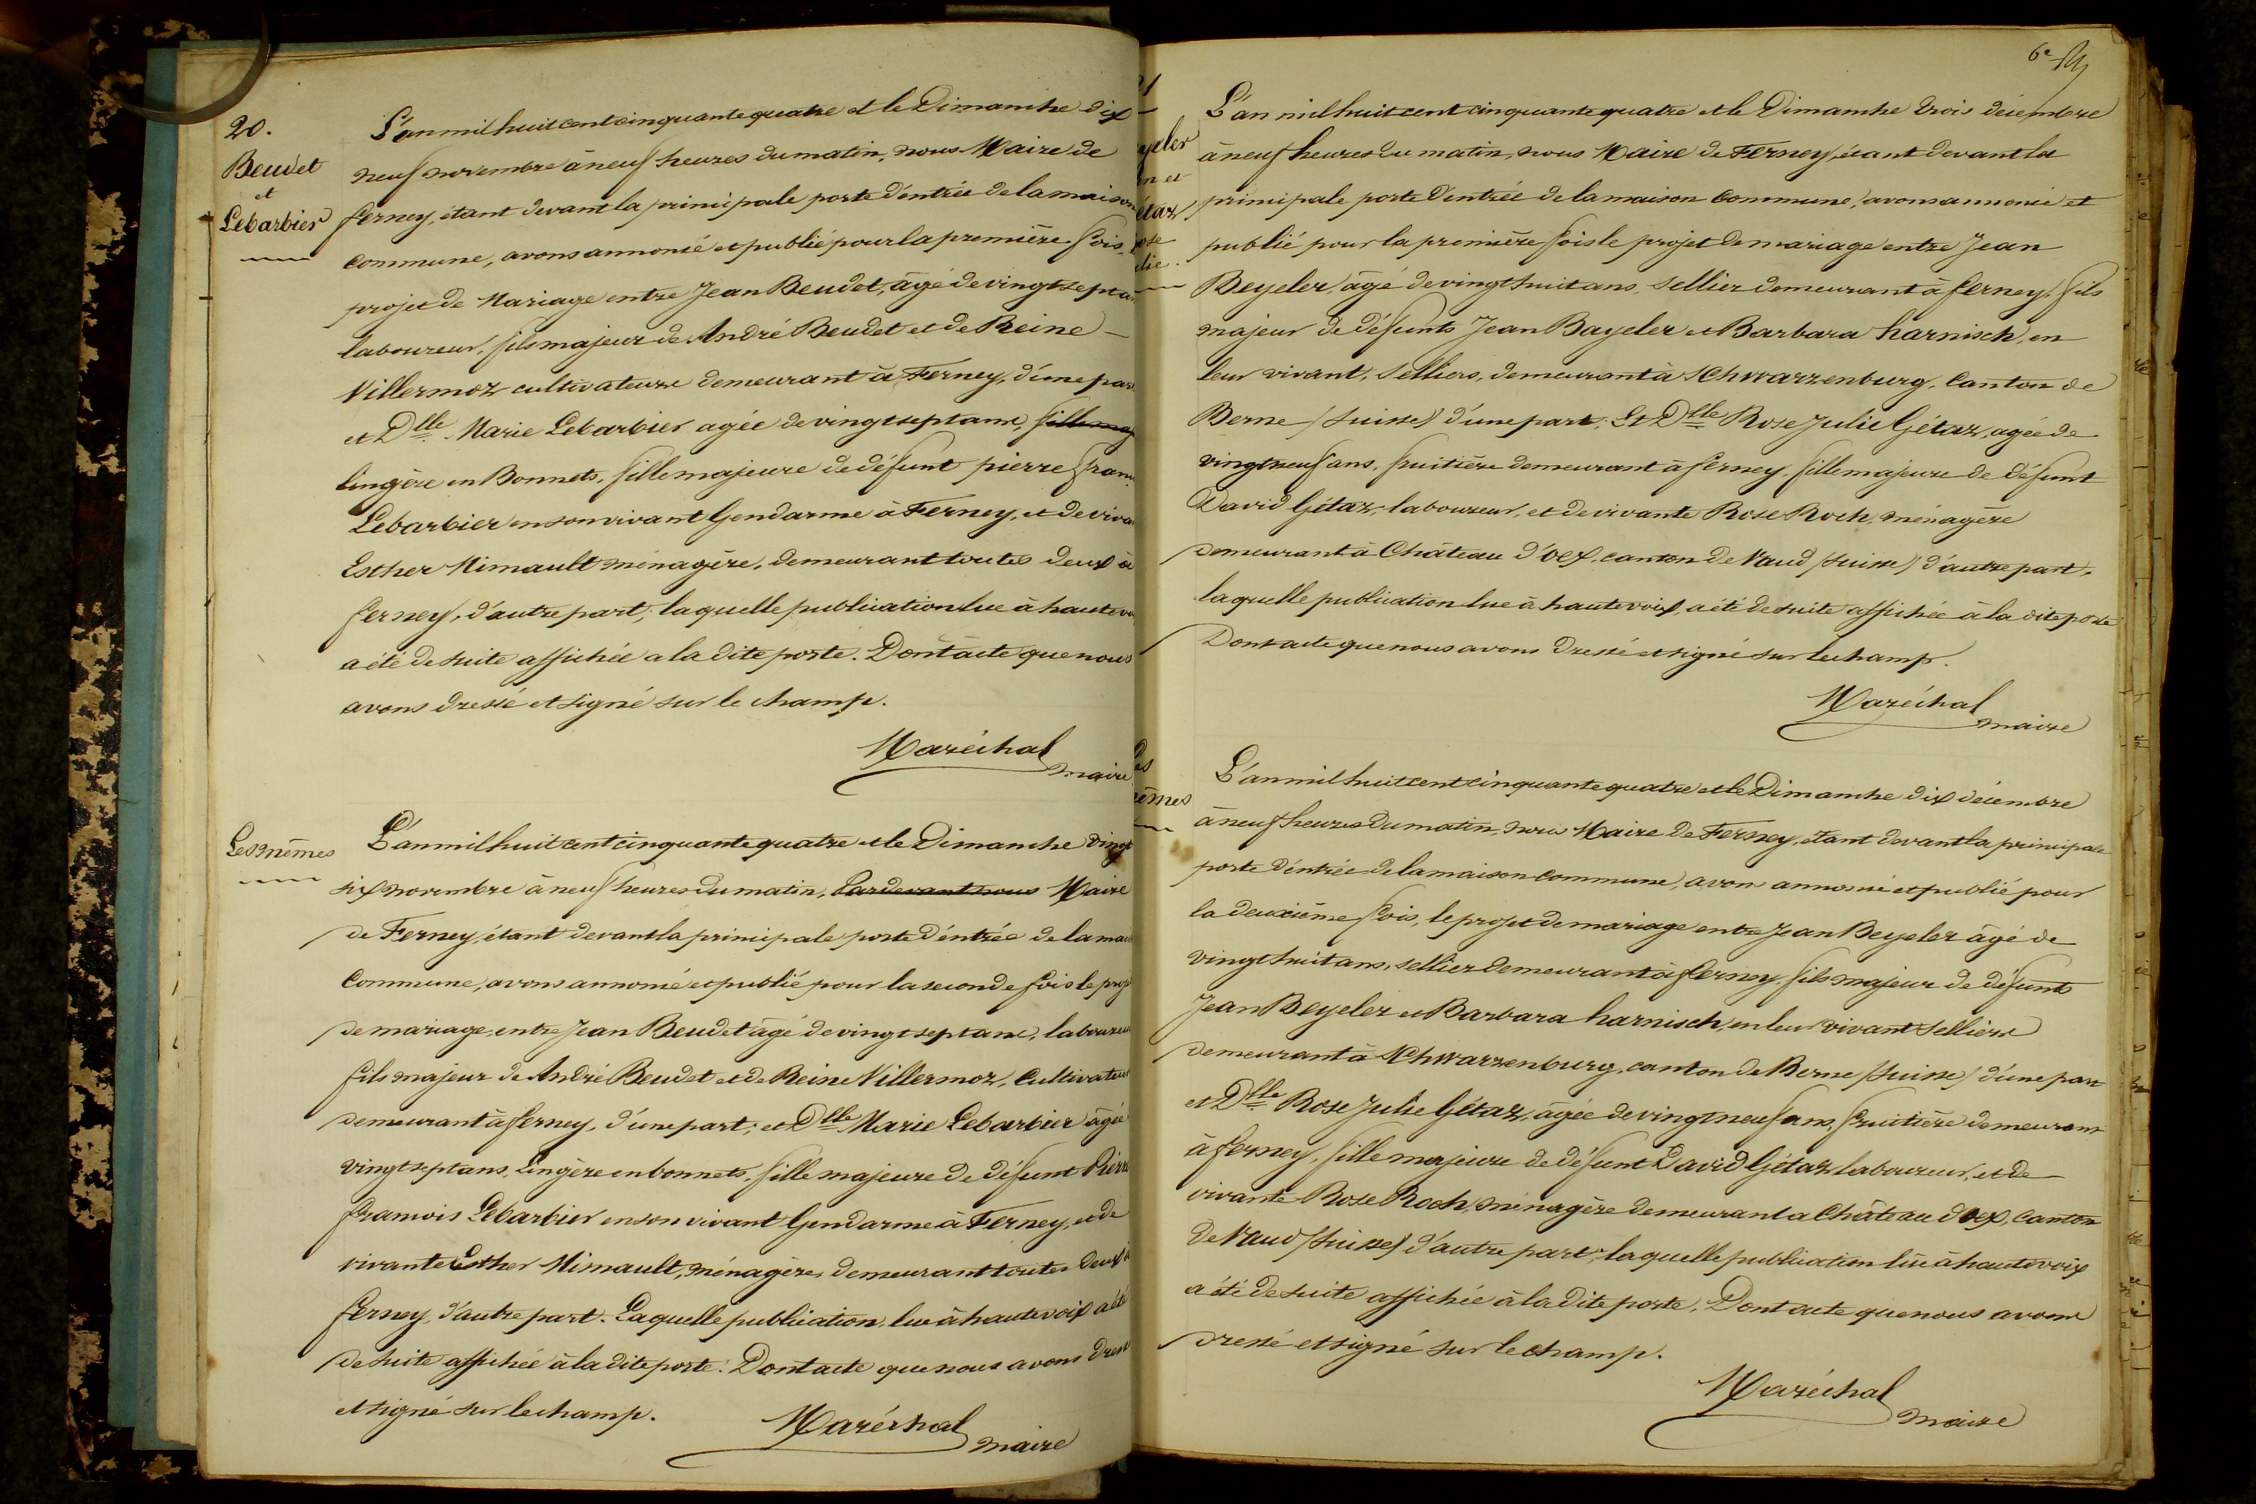 20.
Beudet
et
Lebarbier
L'an mil huit cent cinquante quatre et le Dimanche dix
neuf novembre à neuf heures du matin, nous Maire de
ferney, étant devant la principale porte d'entrée de la maison
commune, avons annoncé et publié pour la première fois
projet de Mariage entre Jean Beudet, âgé de vingt sept a
laboureur, fils majeur de André Beudet et de Reine —
Villermoz cultivateurs demeurant à Ferney, d'une part
et Dlle Marie Lebarbier agée de vingt sept ans, fille maj
lingère en Bonnets, fille majeure de défunt pierre fran
Lebarbier en son vivant Gendarme à Ferney, et de viva
Esther Mimault ménagère, demeurant toutes deux à
ferney, d'autre part; laquelle publication lue à haute vo
a été de suite affichée a la dite porte. Dont acte que nous
avons dressé et signé sur le champ.
Maréchal
maire
Les mêmes
L'an mil huit cent cinquante quatre et le Dimanche vingt
six novembre à neuf heures du matin, Par devant nous Maire
de Ferney, étant devant la principale porte d'entrée de la mai
commune, avons annoncé et publié pour la seconde fois le proj
de mariage, entre Jean Beudet âgé de vingt sept ans, laboureu
fils majeur de André Beudet et de Reine Villermoz, Cultivateur
demeurant à ferney, d'une part; et Dlle Marie Lebarbier âgée
vingt sept ans, Lingère en bonnets, fille majeure de défunt Pierre
francois Lebarbier en son vivant Gendarme à Ferney, et de
vivante Esther Mimault, ménagère, demeurant toutes deux à
ferney, d'autre part. Laquelle publication, lue à haute voix a été
de suite affichée à la dite porte. Dont acte que nous avons dressé
et signé sur le champ.
Maréchal
maire
6e
1
yeler
n et
étaz
ose
lie.
L'an mil huit cent cinquante quatre et le Dimanche trois décembre
à neuf heures du matin, nous Maire de Ferney, étant devant la
principale porte d'entrée de la maison commune, avons annoncé et
publié pour la première fois le projet de mariage entre Jean
Beyeler, âgé de vingt huit ans, sellier demeurant à ferney, fils
majeur de défunts Jean Bayeler et Barbara harnisch, en
leur vivant, selliers, demeurant à Schwarzenburg, Canton de
Berne (Suisse) d'une part; Et Dlle Rose Julie Gétaz, agée de
vingt neuf ans, fruitière demeurant à ferney, fille majeure de défunt
David Gétaz, laboureur, et de vivante Rose Roch, ménagère
demeurant à Château d'oex, canton de Vaud (Suisse) d'autre part,
laquelle publication lue à haute voix, a été de suite affichée à la dite porte
Dont acte que nous avons dressé et signé sur le champ.
Maréchal
maire
es
êmes
L'an mil huit cent cinquante quatre et le Dimanche dix décembre
à neuf heures du matin, nous Maire de Ferney, étant devant la principale
porte d'entrée de la maison commune, avons annoncé et publié pour
la deuxième fois, le projet de mariage entre Jean Beyeler âgé de
vingt huit ans, sellier demeurant à ferney, fils majeur de défunts
Jean Beyeler et Barbara harnisch, en leur vivant Selliers
demeurant à Schwarzenburg, canton de Berne (Suisse) d'une part
et Dlle Rose Julie Gétaz, âgée de vingt neuf ans, fruitière demeurant
à ferney, fille majeure de défunt David Gétaz laboureur, et de
vivante Rose Roch, ménagère demeurant a Château d'oex, Canton
de Vaud (Suisse) d'autre part; laquelle publication lue à haute voix
a été de suite affichée à la dite porte. Dont acte que nous avons
dressé et signé sur le champ.
Maréchal
maire